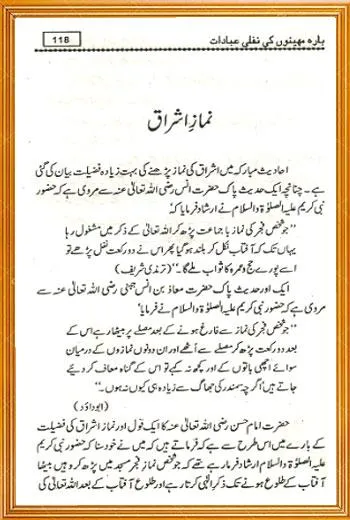 بارہ مہینوں کی نفلی عبادات
118
نمازِ اشراق
احادیث مبارکہ میں اشراق کی نماز پڑھنے کی بہت زیادہ فضیلت بیان کی گئی
ہے۔ چنانچہ ایک حدیث پاک حضرت انس رضی اللہ تعالیٰ عنہ سے مروی ہے کہ حضور
نبی کریم علیہ الصلوٰۃ والسلام نے ارشاد فرمایا کہ۔
"جو شخص فجر کی نماز با جماعت پڑھ کر اللہ تعالیٰ کے ذکر میں مشغول رہا
یہاں تک کہ آفتاب نکل کر بلند ہو گیا پھر اس نے دو رکعت نفل پڑھے تو
اسے پورے حج و عمرہ کا ثواب ملے گا۔" (ترمذی شریف)
ایک اور حدیث پاک حضرت معاذ بن انس جہنی رضی اللہ تعالیٰ عنہ سے
مروی ہے کہ حضور نبی کریم علیہ الصلوٰۃ والسلام نے فرمایا
"جو شخص فجر کی نماز سے فارغ ہونے کے بعد مصلے پر بیٹھا رہے اس کے
بعد دو رکعت پڑھ کر مصلے سے اٹھے اور ان دونوں نمازوں کے درمیان
سوائے اچھی باتوں کے اور کچھ نہ کہے تو اس کے گناہ معاف کر دیئے
جاتے ہیں اگرچہ سمندر کی جھاگ سے زیادہ ہی کیوں نہ ہوں۔"
(ابوداؤد)
حضرت امام حسن رضی اللہ تعالیٰ عنہ کا ایک قول اور نماز اشراق کی فضیلت
کے بارے میں اس طرح سے ہے کہ فرماتے ہیں کہ میں نے خود سنا کہ حضور نبی کریم
علیہ الصلوٰۃ والسلام ارشاد فرما رہے تھے کہ جو شخص نماز فجر مسجد میں پڑھ کر وہیں بیٹھا
آفتاب کے طلوع ہونے تک ذکر الٰہی کرتا رہے اور طلوع آفتاب کے بعد اللہ تعالیٰ کی